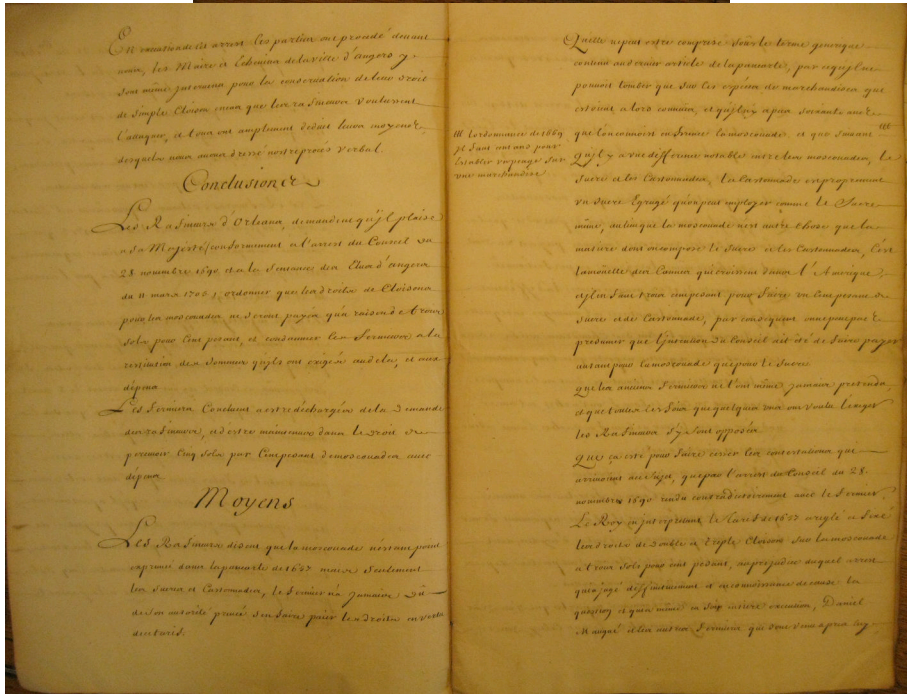 En execution de cet arrest les parties ont procedé devant
nous, les Maire et Echevins de la ville d'Angers y
sont intervenus pour la conservation de leur droit
de simple Cloison encas que les rafineurs voulussent
l'attaquer, et tous ont amplement deduit leurs moyens
desquels nous avons dressé nostre procés verbal.
Conclusions
Les Rafineurs d'Orleans, demandent qu'il plaise
a sa Majesté conformement a l'arrest du Conseil du
28. novembre 1690 et a la Sentence des Eleus d'angers
du 11 mars 1705, ordonner que les droits de Cloisons
pour les moscouades ne seront payés qu'a raison de trois
sols pour Cent pesant, et condamner les Fermiers a la
restitution des Sommes qu'ils ont exigées audela, et aux
dépens
Les Fermiers Concluent a estre dechargés de la demande
des rafineurs, et d'estre maintenus dans le droit de
percevoir Cinq Sols par Cent pesant de moscouades avec
dépens
Moyens
Les Rafineurs disent que la moscouade n'estant point
exprimée dans la pancarte de 1657 mais Seulement
les Sucres et Castonnades, le Fermier n'a jamais dû
de son autorité privée s'en faire paier les droits en vertu
du tarif.
Qu'elle ne peut estre comprise sous le terme generique
contenu au dernier article de la pancarte, parcequ'il ne
pouvoit tomber que sur les especes de marchandises qui
estoient alors connues, et qu'il n'y a pas soixante ans
que l'on connoist en France la moscouade, et que suivant
l'ordonnance de 1669
il faut cent ans pour
establir un peage sur
une marchandise
qu'il y a une difference notable entre les moscouades, le
Sucre et les Castonnades, la Castonnade est proprement
un Sucre Egrugé qu'on peut employer comme le Sucre
même, au lieu que la moscouade n'est autre chose que la
matiere dont on compose le Sucre et les Castonnades, C'est
la moëlle des Cannes qui croissent dans l'Amerique,
et il en faut trois cent pesant pour faire un Cent pesant de
Sucre et de Castonnade, par consequent on ne peut pas
presumer que l'intention du Conseil ait été de faire payer
autant pour la moscouade que pour le Sucre
que les anciens Fermiers ne l'ont même jamais pretendu,
et que toutes les fois que quelques uns ont voulu l'exiger
les Rafineurs s'y sont opposés
que ça esté pour faire cesser les contestations qui
arrivoient a ce sujet, que par l'arrest du Conseil du 28.
novembre 1690 rendu contradictoirement avec le Fermier,
Le Roy en interpretant le tarif de 1657 a reglé et fixé
les droits de double et triple Cloison sur la moscouade
a trois Sols pour cent pesant, au prejudice duquel arrest
qui a jugé diffinitivement et en connoissance de cause la
question et qui a même eu son entiere execution, Daniel
Maugué et les autres Fermiers qui sont venus aprés luy